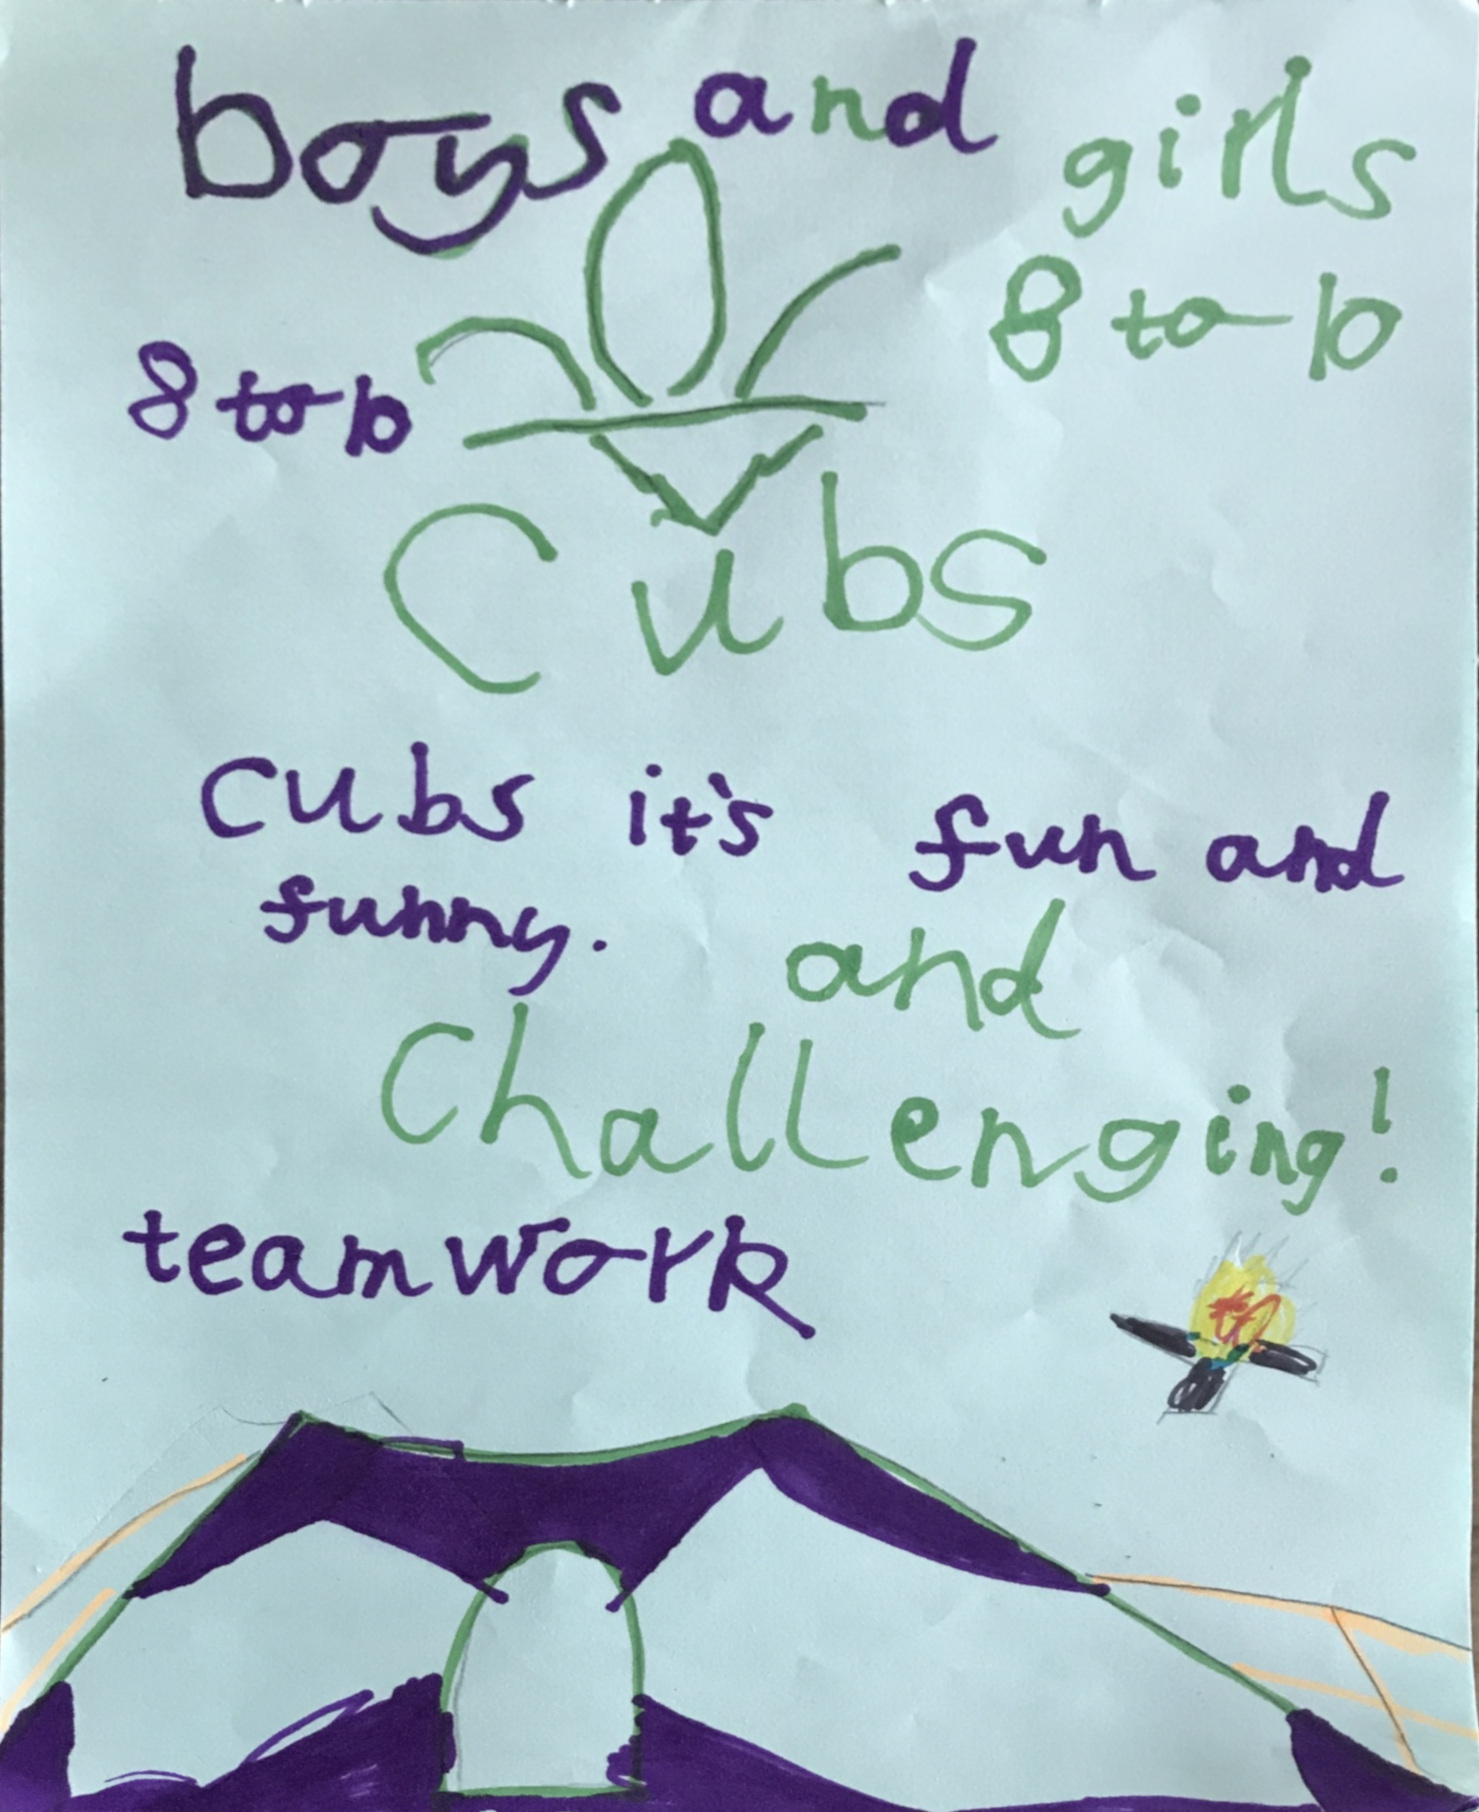 boys and girls
8 to 10
8 to 10
Cubs
cubs it's fun and
funny. and
Challenging!
teamwork